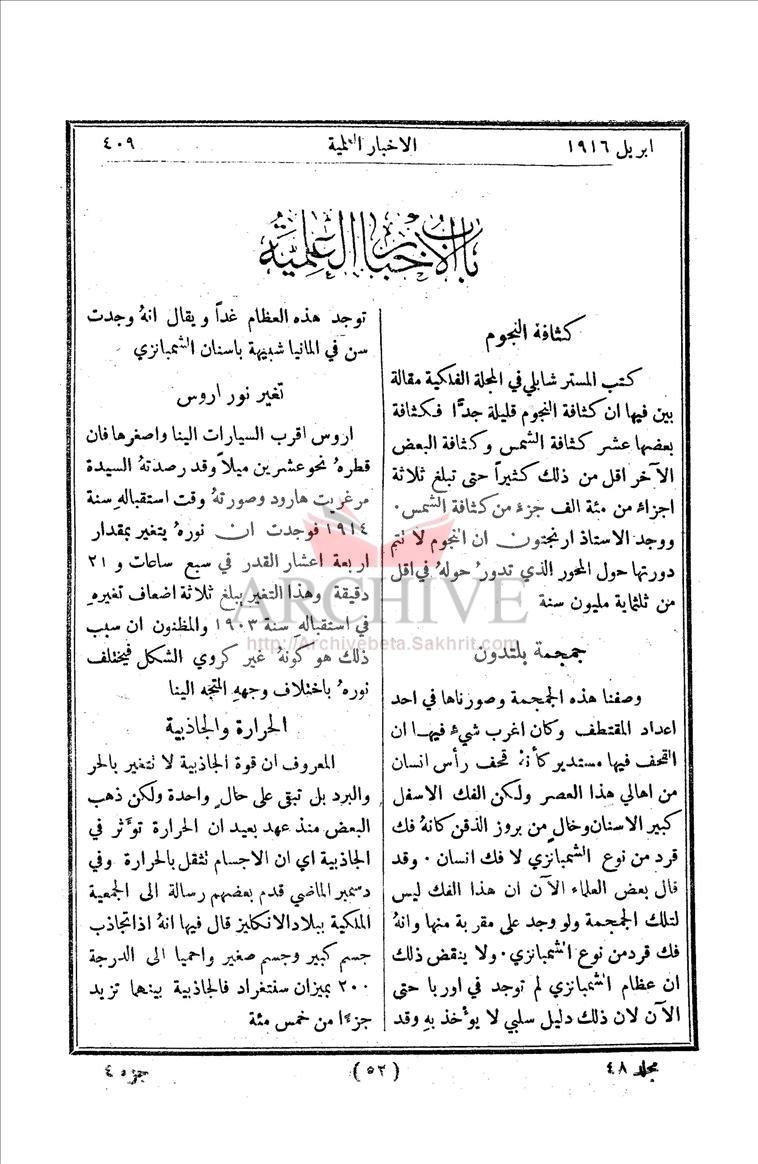 ابريل ١٩١٦
الاخبار العلمية
٤٠٩
باب الاخبار العلمية
كثافة النجوم
كتب المستر شابلي في المجلة الفلكية مقالة
بين فيها ان كثافة النجوم قليلة جدًّا فكثافة
بعضها عشر كثافة الشمس وكثافة البعض
الآخر اقل من ذلك كثيراً حتى تبلغ ثلاثة
اجزاء من مئة الف جزء من كثافة الشمس.
ووجد الاستاذ ارنجتون ان النجوم لا تتم
دورتها حول المحور الذي تدور حولهُ في اقل
من ثلثماية مليون سنة
جمجمة بلتدون
وصفنا هذه الجمجمة وصورناها في احد
اعداد المقتطف وكان اغرب شيء فيها ان
القحف فيها مستدير كأنهُ قحف رأس انسان
من اهالي هذا العصر ولكن الفك الاسفل
كبير الاسنان وخالٍ من بروز الذقن كانهُ فك
قرد من نوع الشمبانزي لا فك انسان. وقد
قال بعض العلماء الآن ان هذا الفك ليس
لتلك الجمجمة ولو وجد على مقربة منها وانهُ
فك قرد من نوع الشمبانزي. ولا ينقض ذلك
ان عظام الشمبانزي لم توجد في اوربا حتى
الآن لان ذلك دليل سلبي لا يؤخذ بهِ وقد
توجد هذه العظام غداً ويقال انهُ وجدت
سن في المانيا شبيهة باسنان الشمبانزي
تغير نور اروس
اروس اقرب السيارات الينا واصغرها فان
قطرهُ نحو عشرين ميلاً وقد رصدتهُ السيدة
مرغريت هارود وصورتهُ وقت استقبالهِ سنة
١٩١٤ فوجدت ان نورهُ يتغير بمقدار
اربعة اعشار القدر في سبع ساعات و ٢١
دقيقة وهذا التغير يبلغ ثلاثة اضعاف تغيرهِ
في استقبالهِ سنة ١٩٠٣ والمظنون ان سبب
ذلك هو كونهُ غير كروي الشكل فيختلف
نورهُ باختلاف وجههِ المتجه الينا
الحرارة والجاذبية
المعروف ان قوة الجاذبية لا تتغير بالحر
والبرد بل تبقى على حالٍ واحدة ولكن ذهب
البعض منذ عهد بعيد ان الحرارة تؤثر في
الجاذبية اي ان الاجسام تثقل بالحرارة وفي
دسمبر الماضي قدم بعضهم رسالة الى الجمعية
الملكية ببلاد الانكليز قال فيها انهُ اذا تجاذب
جسم كبير وجسم صغير واحميا الى الدرجة
٢٠٠ بميزان سنتغراد فالجاذبية بينهما تزيد
جزءًا من خمس مئة
مجلد ٤٨
(٥٢)
جزء ٤
ARCHIVE
http://Archivebeta.Sakhrit.com